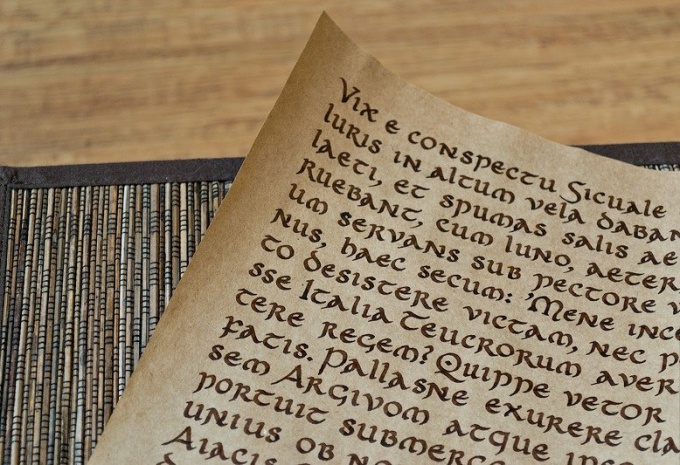 Vix e conspectu Sicuale
luris in altum vela daban
laeti, et spumas salis ae
ruebant, cum Iuno, aeter
um servans sub pectore v
nus, haec secum: 'Mene ince
to desistere victam, nec p
sse Italia Teucrorum aver
tere regem? Quippe vetor
fatis. Pallasne exurere cla
sem Argivom atque
portuit
unius ob
Aiacis